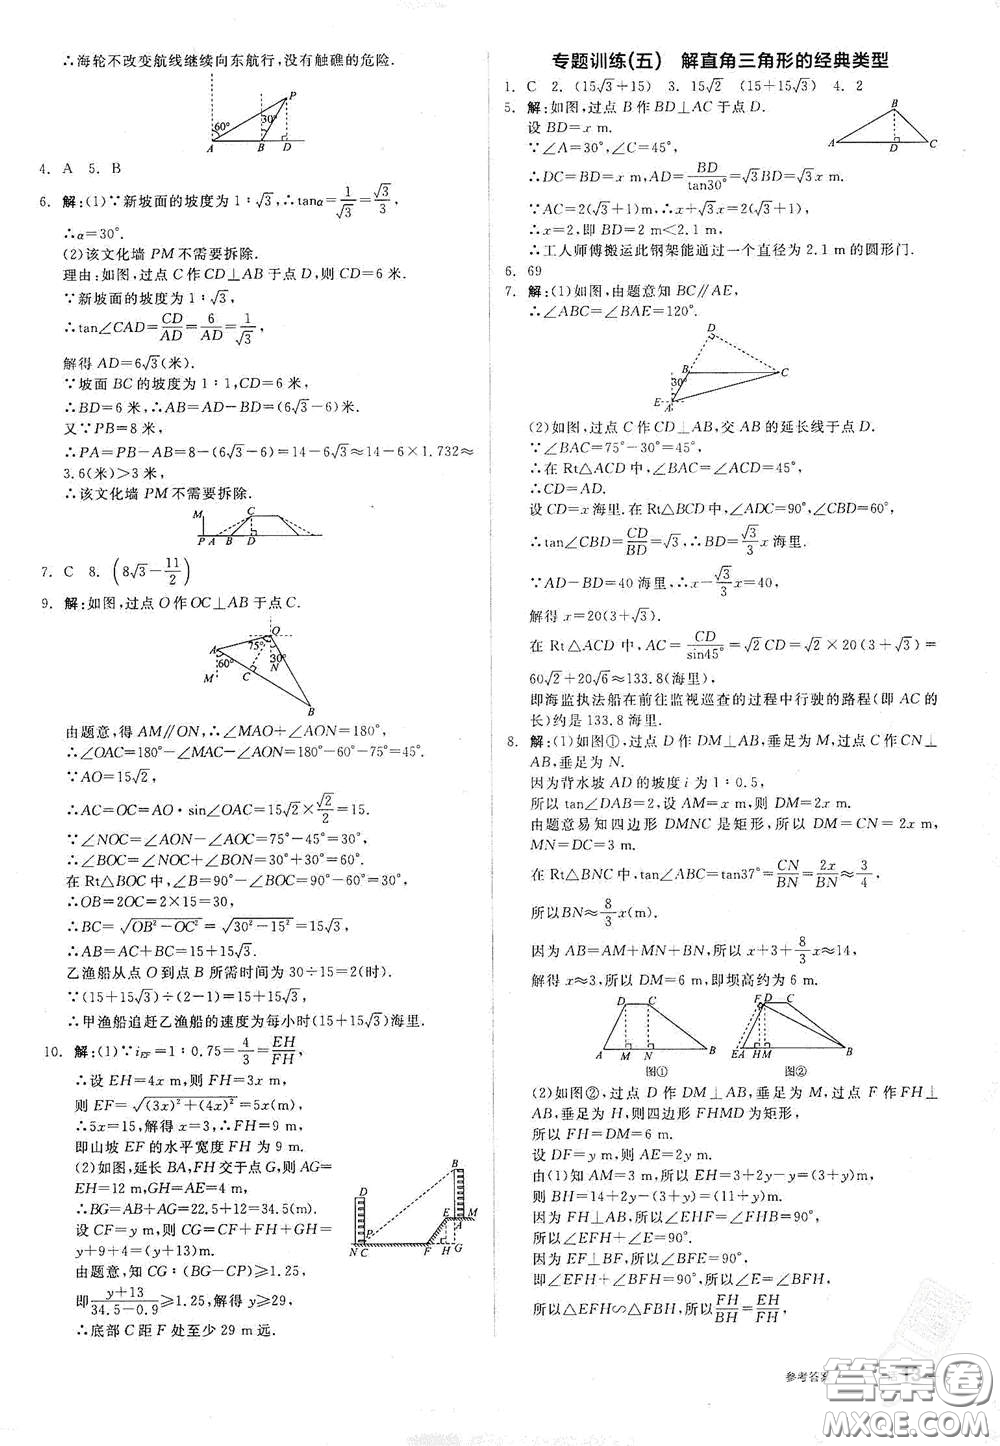 ∴海轮不改变航线继续向东航行,没有触礁的危险.
P
60°
30°
A B D
4. A 5. B
6. 解:(1)∵新坡面的坡度为1∶√3,∴tanα=1/√3=√3/3,
∴α=30°.
(2)该文化墙PM不需要拆除.
理由:如图,过点C作CD⊥AB于点D,则CD=6米.
∵新坡面的坡度为1∶√3,
∴tan∠CAD=CD/AD=6/AD=1/√3,
解得AD=6√3(米).
∵坡面BC的坡度为1∶1,CD=6米,
∴BD=6米,∴AB=AD-BD=(6√3-6)米.
又∵PB=8米,
∴PA=PB-AB=8-(6√3-6)=14-6√3≈14-6×1.732≈
3.6(米)>3米,
∴该文化墙PM不需要拆除.
M C
P A B D
7. C 8. (8√3-11/2)
9. 解:如图,过点O作OC⊥AB于点C.
O
A 75° 30°
60°
M C N
B
由题意,得AM∥ON,∴∠MAO+∠AON=180°,
∴∠OAC=180°-∠MAC-∠AON=180°-60°-75°=45°.
∵AO=15√2,
∴AC=OC=AO·sin∠OAC=15√2×√2/2=15.
∵∠NOC=∠AON-∠AOC=75°-45°=30°,
∴∠BOC=∠NOC+∠BON=30°+30°=60°.
在Rt△BOC中,∠B=90°-∠BOC=30°,
∴OB=2OC=2×15=30,
∴BC=√(OB²-OC²)=√(30²-15²)=15√3,
∴AB=AC+BC=15+15√3.
乙渔船从点O到点B所需时间为30÷15=2(时).
∵(15+15√3)÷(2-1)=15+15√3,
∴甲渔船追赶乙渔船的速度为每小时(15+15√3)海里.
10. 解:(1)∵i_EF=1∶0.75=4/3=EH/FH,
∴设EH=4x m,则FH=3x m,
则EF=√((3x)²+(4x)²)=5x(m).
∴5x=15,解得x=3,∴FH=9 m,
即山坡EF的水平宽度FH为9 m.
(2)如图,延长BA,FH交于点G,则AG=
EH=12 m,GH=AE=4 m,
∴BG=AB+AG=22.5+12=34.5(m).
设CF=y m,则CG=CF+FH+GH=
y+9+4=(y+13)m.
由题意,知CG∶(BG-CP)≥1.25,
即(y+13)/(34.5-0.9)≥1.25,解得y≥29,
∴底部C距F处至少29 m远.
B
D
E
A M
P
N C F H G
专题训练(五) 解直角三角形的经典类型
1. C 2. (15√3+15) 3. 15√2 (15+15√3) 4. 2
5. 解:如图,过点B作BD⊥AC于点D.
设BD=x m.
∵∠A=30°,∠C=45°,
∴DC=BD=x m,AD=BD/tan30°=√3BD=√3x m.
∵AC=2(√3+1)m,∴x+√3x=2(√3+1),
∴x=2,即BD=2 m<2.1 m,
∴工人师傅搬运此钢架能通过一个直径为2.1 m的圆形门.
B
A D C
6. 69
7. 解:(1)如图,由题意知BC∥AE,
∴∠ABC=∠BAE=120°.
D
B C
30°
E A
(2)如图,过点C作CD⊥AB,交AB的延长线于点D.
∵∠BAC=75°-30°=45°,
∴在Rt△ACD中,∠BAC=∠ACD=45°,
∴CD=AD.
设CD=x海里.在Rt△BCD中,∠ADC=90°,∠CBD=60°,
∴tan∠CBD=CD/BD=√3,∴BD=√3/3x海里.
∵AD-BD=40海里,∴x-√3/3x=40,
解得x=20(3+√3).
在Rt△ACD中,AC=CD/sin45°=√2CD=√2×20(3+√3)=
60√2+20√6≈133.8(海里),
即海监执法船在前往监视巡查的过程中行驶的路程(即AC的
长)约是133.8海里.
8. 解:(1)如图①,过点D作DM⊥AB,垂足为M,过点C作CN⊥
AB,垂足为N.
因为背水坡AD的坡度i为1∶0.5,
所以tan∠DAB=2,设AM=x m,则DM=2x m.
由题意易知四边形DMNC是矩形,所以DM=CN=2x m,
MN=DC=3 m.
在Rt△BNC中,因为∠CAB=37°,tan37°=CN/BN=2x/BN≈3/4,
所以BN≈8/3x(m).
因为AB=AM+MN+BN,所以x+3+8/3x≈14,
解得x≈3,所以DM=6 m,即坝高约为6 m.
D C
A M N B
图①
F D C
E A H M B
图②
(2)如图②,过点D作DM⊥AB,垂足为M,过点F作FH⊥
AB,垂足为H,则四边形FHMD为矩形,
所以FH=DM=6 m.
设DF=y m,所以AE=2y m.
由(1)知AM=3 m,所以EH=3+2y-y=(3+y)m,
则BH=14+2y-(3+y)=(11+y)m.
因为FH⊥AB,所以∠EHF=∠FHB=90°,
所以∠EFH+∠E=90°.
因为EF⊥BF,所以∠BFE=90°,
即∠EFH+∠BFH=90°,所以∠E=∠BFH,
所以△EFH∽△FBH,所以FH/BH=EH/FH,
参考答案
13
答案圈
MXQE.COM